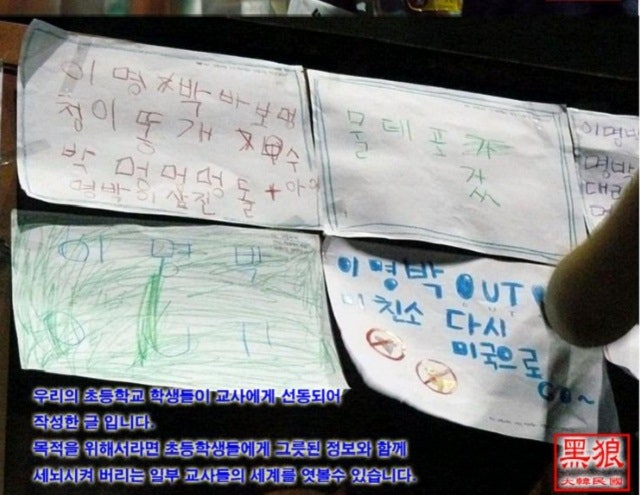 이명박바보멍
청이똥개
박 멍멍멍
물데포
이명
명박
이 명 박
이명박 OUT
미친소 다시
미국으로
GO~
우리의 초등학교 학생들이 교사에게 선동되어
작성한 글 입니다.
목적을 위해서라면 초등학생들에게 그릇된 정보와 함께
세뇌시켜 버리는 일부 교사들의 세계를 엿볼수 있습니다.
黑狼
大韓民國